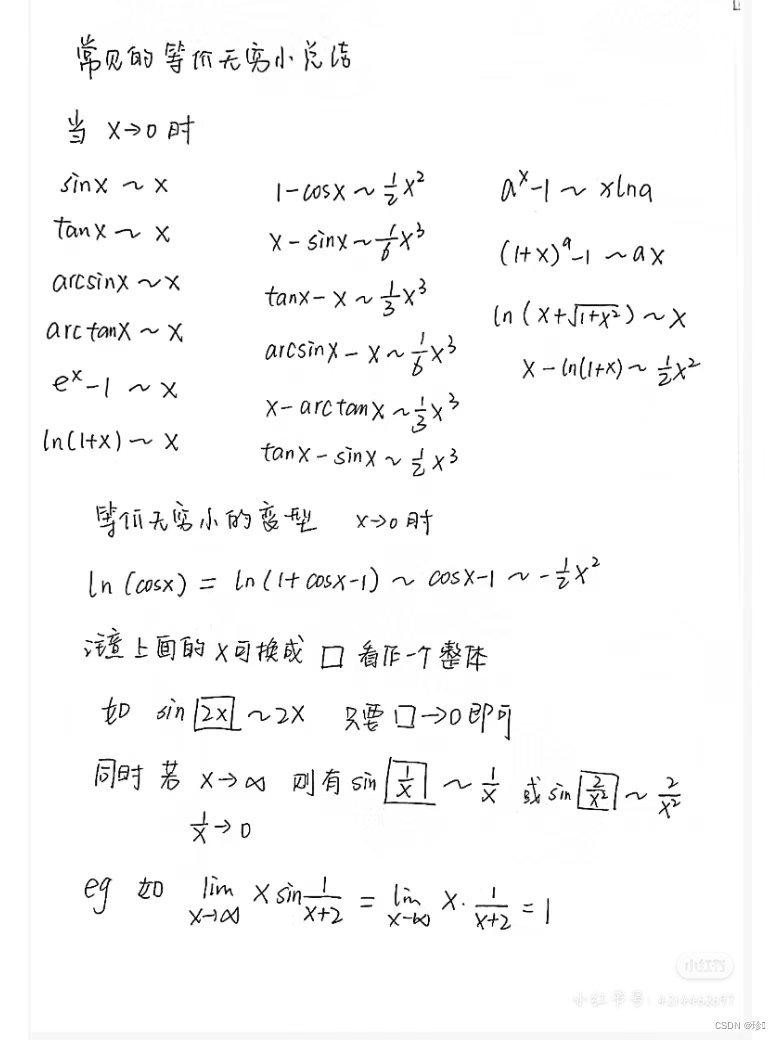 常见的等价无穷小总结
当 x→0 时
sinx ~ x
tanx ~ x
arcsinx ~ x
arctanx ~ x
e^x-1 ~ x
ln(1+x) ~ x
1-cosx ~ 1/2 x²
x-sinx ~ 1/6 x³
tanx-x ~ 1/3 x³
arcsinx-x ~ 1/6 x³
x-arctanx ~ 1/3 x³
tanx-sinx ~ 1/2 x³
a^x-1 ~ xlna
(1+x)^a-1 ~ ax
ln(x+√(1+x²)) ~ x
x-ln(1+x) ~ 1/2 x²
等价无穷小的变型 x→0 时
ln(cosx) = ln(1+cosx-1) ~ cosx-1 ~ -1/2 x²
注意上面的 x 可换成 □ 看作一个整体
如 sin 2x ~ 2x 只要 □→0 即可
同时 若 x→∞ 则有 sin 1/x ~ 1/x 或 sin 2/x² ~ 2/x²
1/x → 0
eg 如 lim x→∞ x sin 1/(x+2) = lim x→∞ x · 1/(x+2) = 1
小红书
小红书号: 4214462897
CSDN @珍